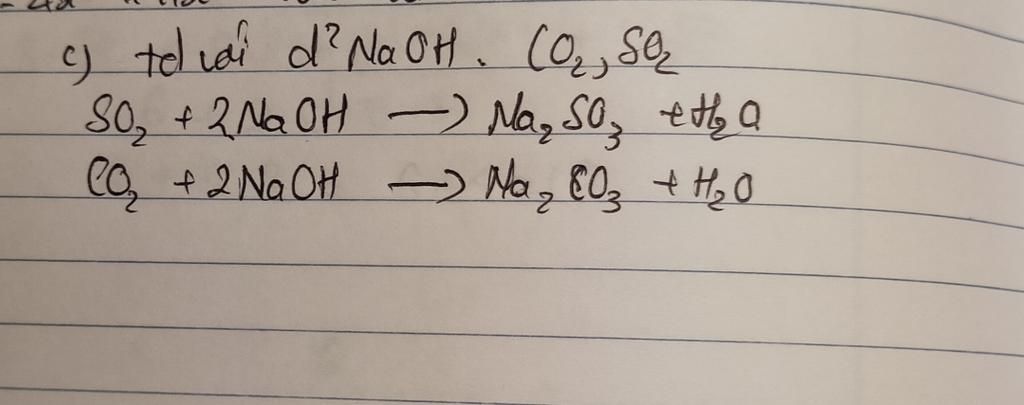 c) td với d² NaOH. CO₂, SO₂
SO₂ + 2NaOH → Na₂SO₃ + H₂O
CO₂ + 2NaOH → Na₂CO₃ + H₂O